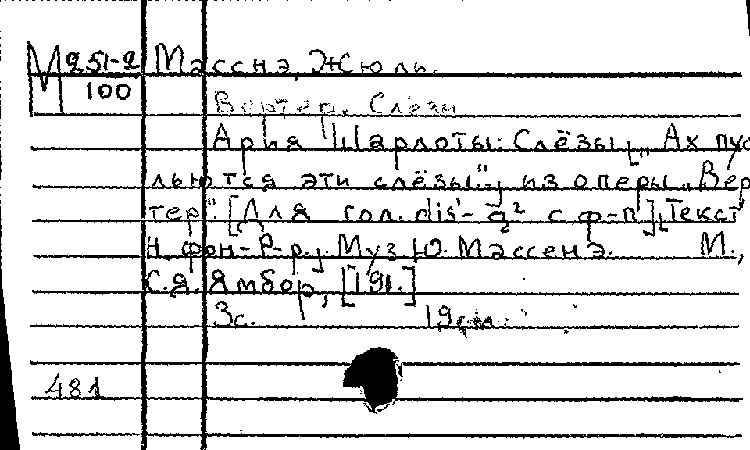 М 251-2 Масснэ, Жюль.
100
Вертер. Слёзы
Ария Шарлоты: Слёзы [„Ах пус
льются эти слёзы"], из оперы „Вер
тер". [Для гол. dis'- g² с ф-п]. Текст
Н. фон-Р-р. Муз Ю. Массенэ. М.,
С.Я. Ямбор, [191.]
3с. 19см.
481